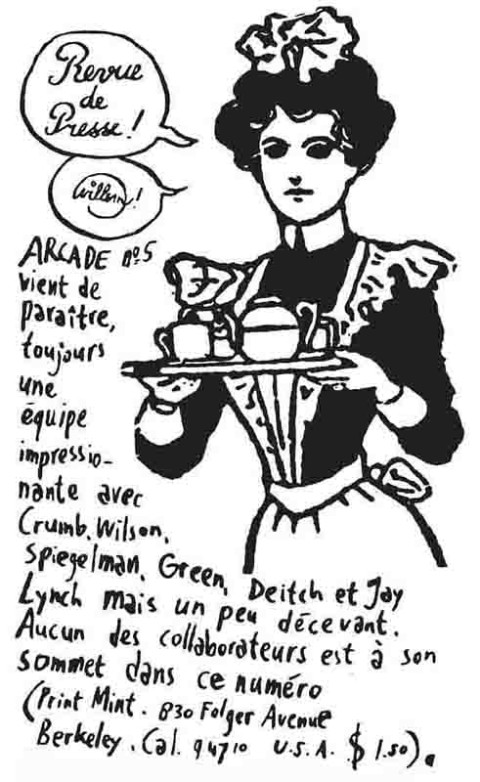 Revue
de
Presse!
Willem!
ARCADE nº5
vient de
paraître,
toujours
une
équipe
impressio-
nante avec
Crumb, Wilson,
Spiegelman, Green, Deitch et Jay
Lynch mais un peu décevant.
Aucun des collaborateurs est à son
sommet dans ce numéro
(Print Mint. 830 Folger Avenue
Berkeley. Cal. 94710 U.S.A. $ 1.50).